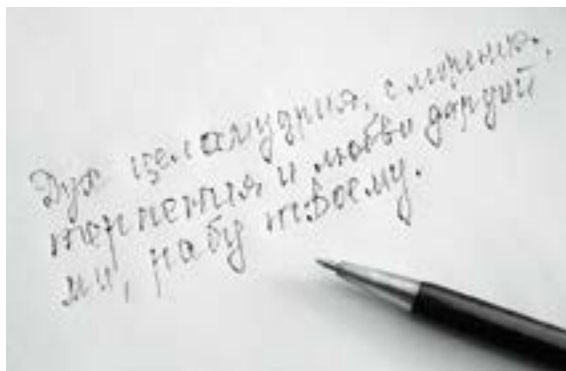 Дух целамудрия, смирения,
терпения и любви даруй
ми, рабу твоему.